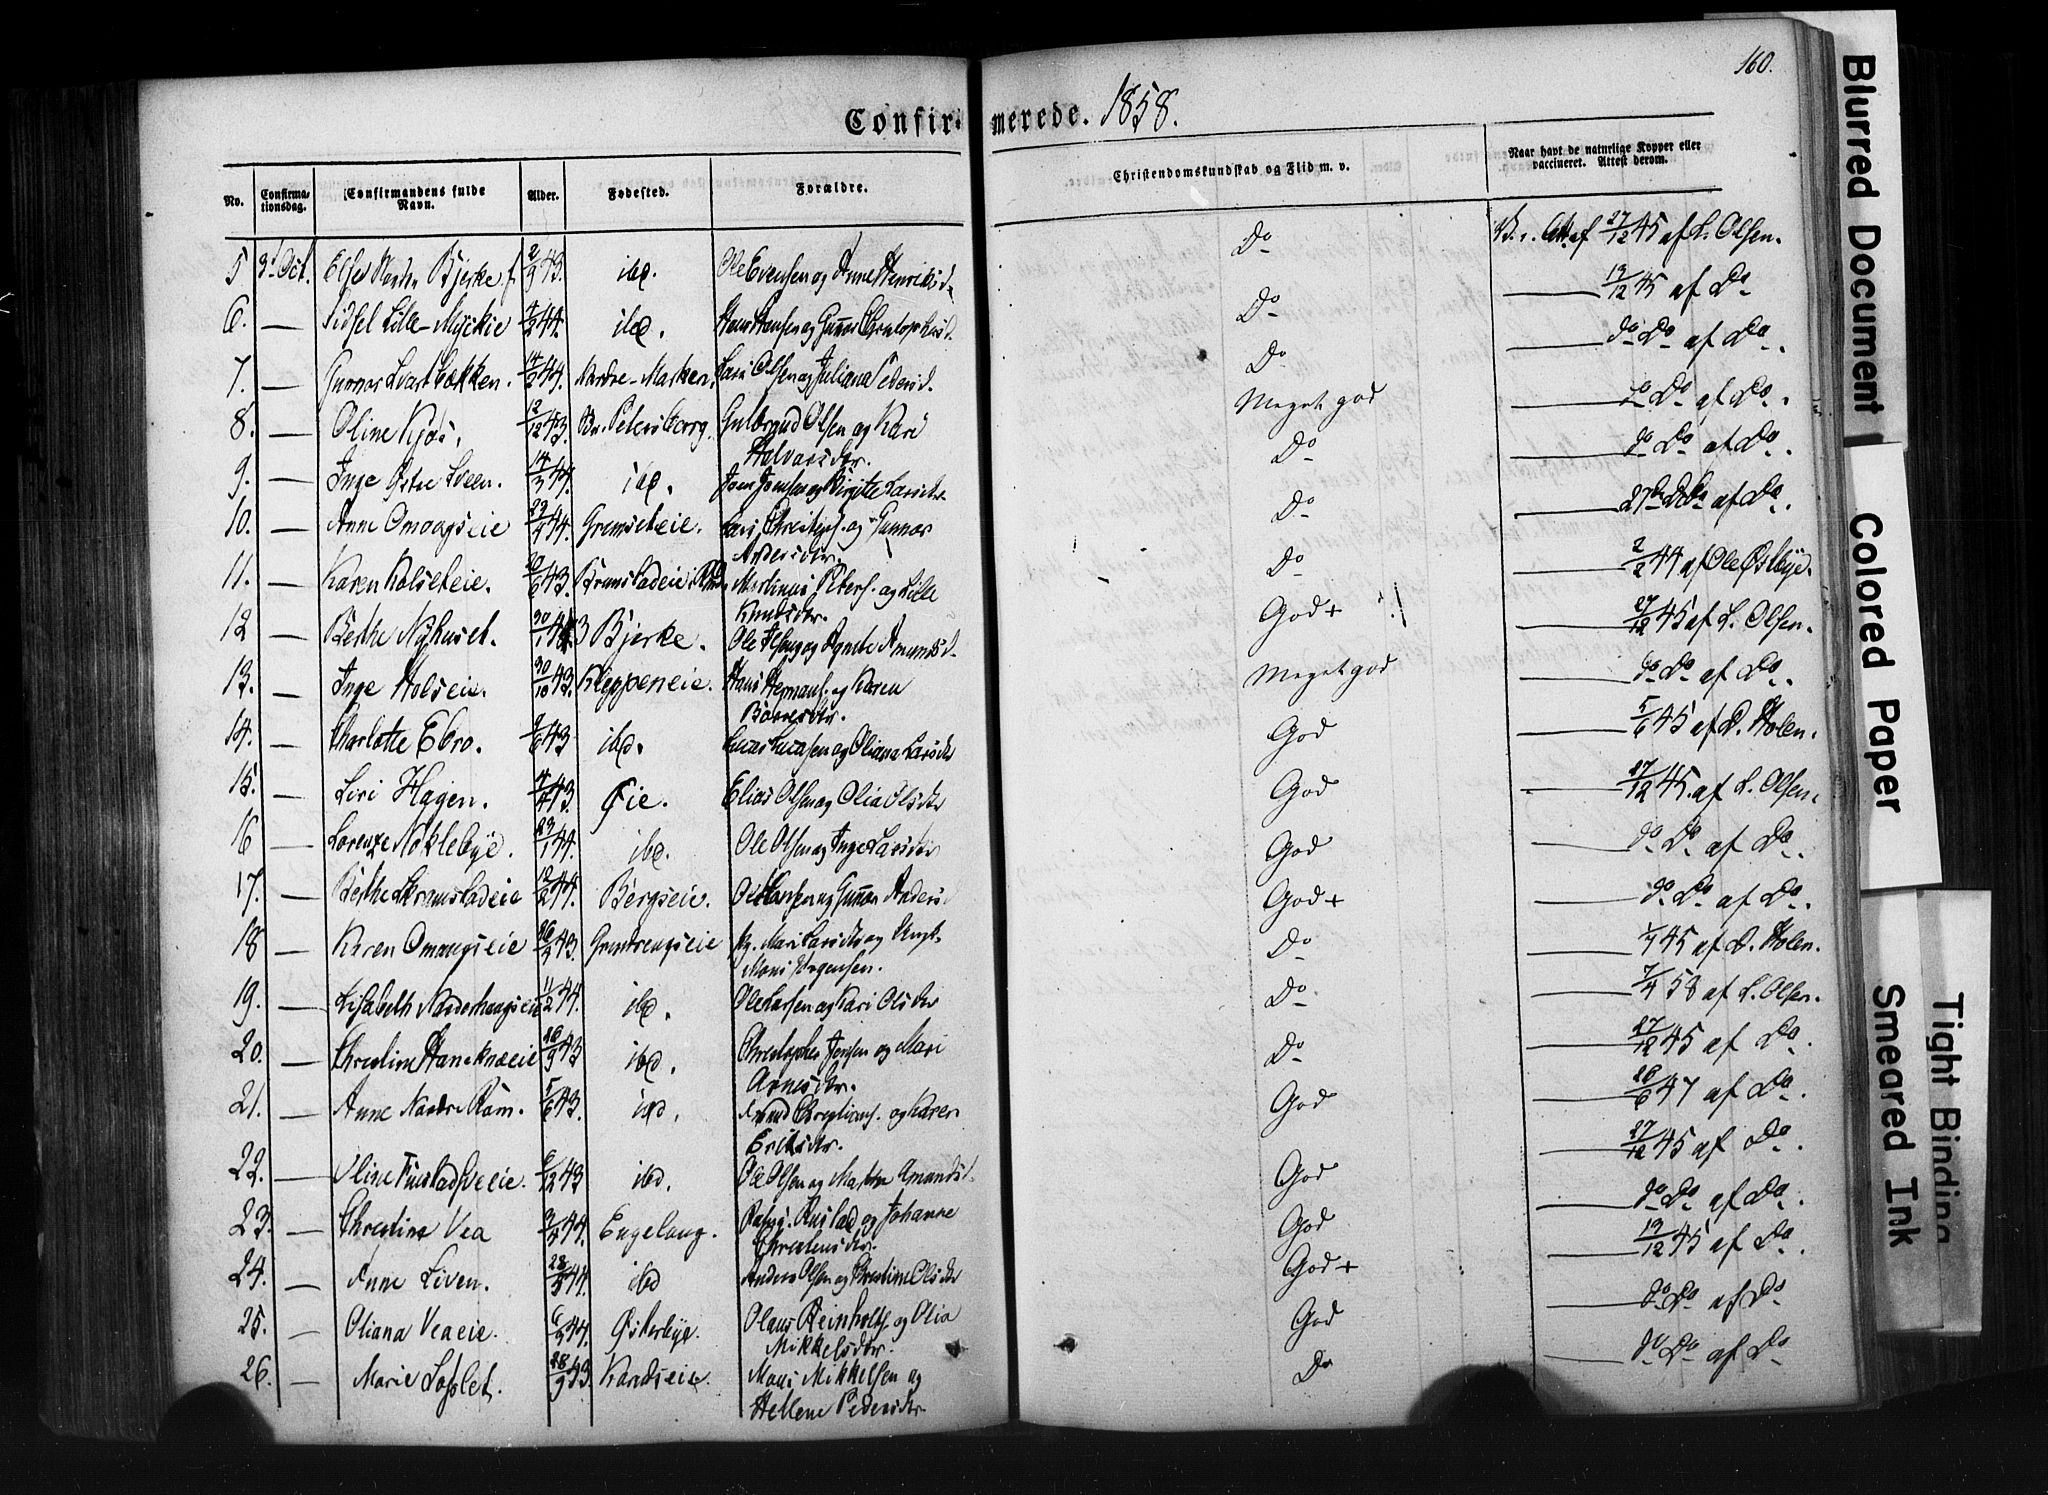 160.
Confirmerede. 1858.
No. Confirmationsdag. Confirmandens fulde Navn. Alder. Fødested. Forældre. Christendomskundskab og Flid m. v. Naar havt de naturlige Kopper eller vaccineret. Attest derom.
5 3d Oct. Else Nordre Bjerke 2/9 43. ibd. Ole Evensen og Anne Henriksd. Do 27/12 45 af L. Olsen.
6. — Sidsel Lille-Myckie 4/2 44. ibd. Hans Hansen og Gunnor Christophersd. Do — 19/12 45 af Do
7. — Gunnor Svartbækken. 14/2 44. Nordre-Marken. Lars Olsen og Juliana Pedersd. Do — do Do af Do.
8. — Oline Kjos. 12/12 43. Petersborg. Gulbrand Olsen og Kari Halvorsdtr. Meget god — do Do af Do.
9. — Inge Østre Sveen. 14/3 44. ibd. Joen Joensen og Birgitte Larsdtr. Do — do Do af Do.
10. — Anne Omangseie 23/4 44. Gremseteie. Lars Christophs. og Gunnor Andersdtr. Do — 27 Do af Do.
11. — Karen Kolseteie. 20/6 43. Martinus Peters. og Lille Knudsdtr. Do — 2/2 44 af Ole Østbye.
12 — Berthe Nyhuset. 30/1 43 Bjerke. Ole Olsen og Agnete Amundsd. God + — 27/12 45 af L. Olsen.
13. — Inge Holseie. 30/10 43. Kleppeneie. Hans Hermans. og Karen Baaresdtr. Meget god — do Do af Do.
14. — Charlotte Ebro. 9/6 43 ibd. Lucas Lucassen og Oliana Larsdtr God — 5/6 45 af D. Holen.
15. — Siri Hagen. 4/4 43. Øie. Elias Olsen og Olia Olsdtr God — 27/12 45. af L. Olsen.
16 — Lorenze Noklebye. 23/1 44. ibd. Ole Olsen og Inge Larsdtr God — do Do af Do.
17. — Berthe Skramstadeie 12/2 44. Bergseie. Ole Hansen og Gunnor Andersd God + — do Do af Do.
18 — Karen Omangseie 26/2 43. Grundsengseie Pg. Mari Larsdtr og Ungk. Mons Jørgensen. Do — 1/7 45 af D. Holen.
19. — Lisabeth Norderhaugseie 11/2 44. ibd. Ole Larsen og Kari Olsdtr Do — 7/4 58 af L. Olsen.
20. — Christine Haneknæeie 26/9 43 ibd. Christopher Jensen og Mari Arnesdtr. Do — 27/12 45 af Do.
21. — Anne Nordre Rom. 5/6 43. ibd. Arnund Christians. og Karen Eriksdtr. God — 26/6 47 af Do.
22. — Oline Finstadsveeie. 6/12 43 ibd. Ole Olsen og Marthe Amundsd. God — 27/12 45 af Do.
23. — Christine Vea 3/4 44. Engelaug. Rustad og Johanne Christensdtr. God — do Do af Do.
24. — Anne Liven. 28/3 44. ibd Anders Olsen og Christine Olsdtr God + — 19/12 45 af Do.
25. — Oliana Veaeie. 6/3 44. Østerbye. Olaus Reinholts. og Olia Mikkelsdtr. God — do Do af Do
26. — Marie Løsset. 28/9 43. Kandseie. Mons Mikkelsen og Hellene Pedersdtr Do — do Do af Do
Blurred Document
Colored Paper
Smeared Ink
Tight Binding